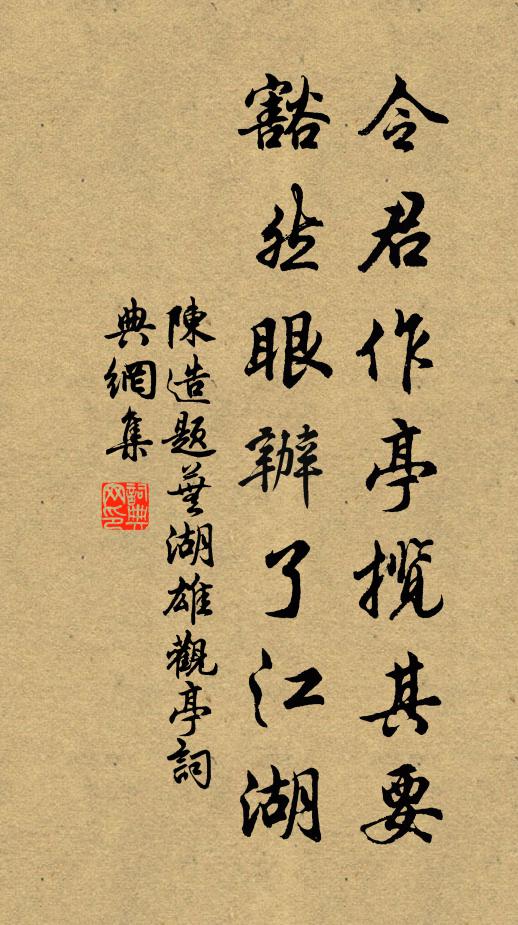 令君作亭攬其要
豁然眼辦了江湖
陳造題蕪湖雄觀亭詞
典網集
詞典
网印